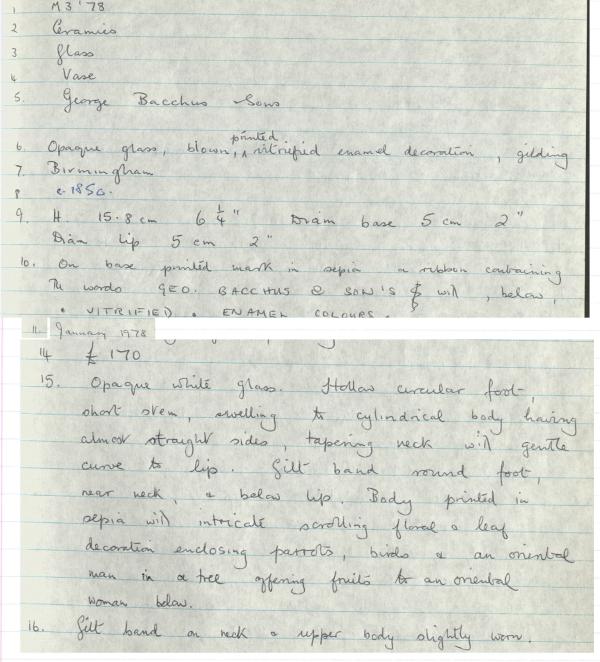 1 M3'78
2 Ceramics
3 Glass
4 Vase
5. George Bacchus & Sons
6. Opaque glass, blown, printed vitrified enamel decoration, gilding
7. Birmingham
8 c. 1850.
9. H 15.8 cm 6 1/4" Diam base 5 cm 2"
Diam lip 5 cm 2"
10. On base printed mark in sepia a ribbon containing
The words GEO. BACCHUS & SON'S & with, below,
• VITRIFIED • ENAMEL COLOURS •
11. January 1978
14 £170
15. Opaque white glass. Hollow circular foot,
short stem, swelling to cylindrical body having
almost straight sides, tapering neck with gentle
curve to lip. Gilt band round foot,
near neck, & below lip. Body printed in
sepia with intricate scrolling floral & leaf
decoration enclosing parrots, birds & an oriental
man in a tree offering fruits to an oriental
woman below.
16. Gilt band on neck & upper body slightly worn.